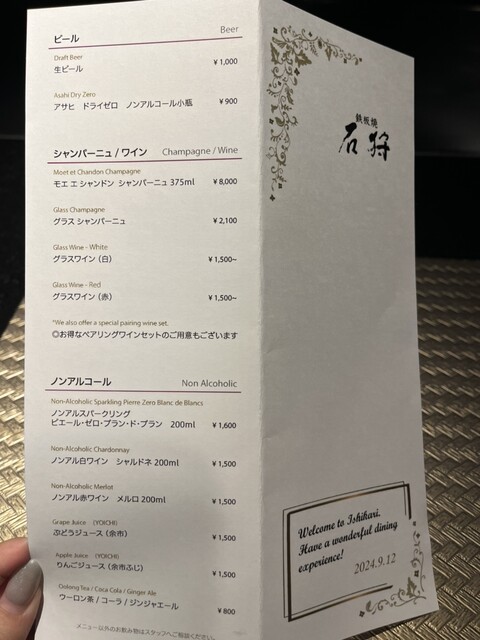 ビール Beer
Draft Beer
生ビール ¥1,000
Asahi Dry Zero
アサヒ ドライゼロ ノンアルコール小瓶 ¥900
シャンパーニュ / ワイン Champagne / Wine
Moet et Chandon Champagne
モエ エ シャンドン シャンパーニュ 375ml ¥8,000
Glass Champagne
グラス シャンパーニュ ¥2,100
Glass Wine - White
グラスワイン (白) ¥1,500~
Glass Wine - Red
グラスワイン (赤) ¥1,500~
*We also offer a special pairing wine set.
◎お得なペアリングワインセットのご用意もございます
ノンアルコール Non Alcoholic
Non-Alcoholic Sparkling Pierre Zero Blanc de Blancs
ノンアルスパークリング
ピエール・ゼロ・ブラン・ド・ブラン 200ml ¥1,600
Non-Alcoholic Chardonnay
ノンアル白ワイン シャルドネ 200ml ¥1,500
Non-Alcoholic Merlot
ノンアル赤ワイン メルロ 200ml ¥1,500
Grape Juice (YOICHI)
ぶどうジュース (余市) ¥1,500
Apple Juice (YOICHI)
りんごジュース (余市ふじ) ¥1,500
Oolong Tea / Coca Cola / Ginger Ale
ウーロン茶 / コーラ / ジンジャエール ¥800
メニュー以外のお飲み物はスタッフへご相談ください。
鉄板焼
石狩
Welcome to Ishikari.
Have a wonderful dining
experience!
2024.9.12